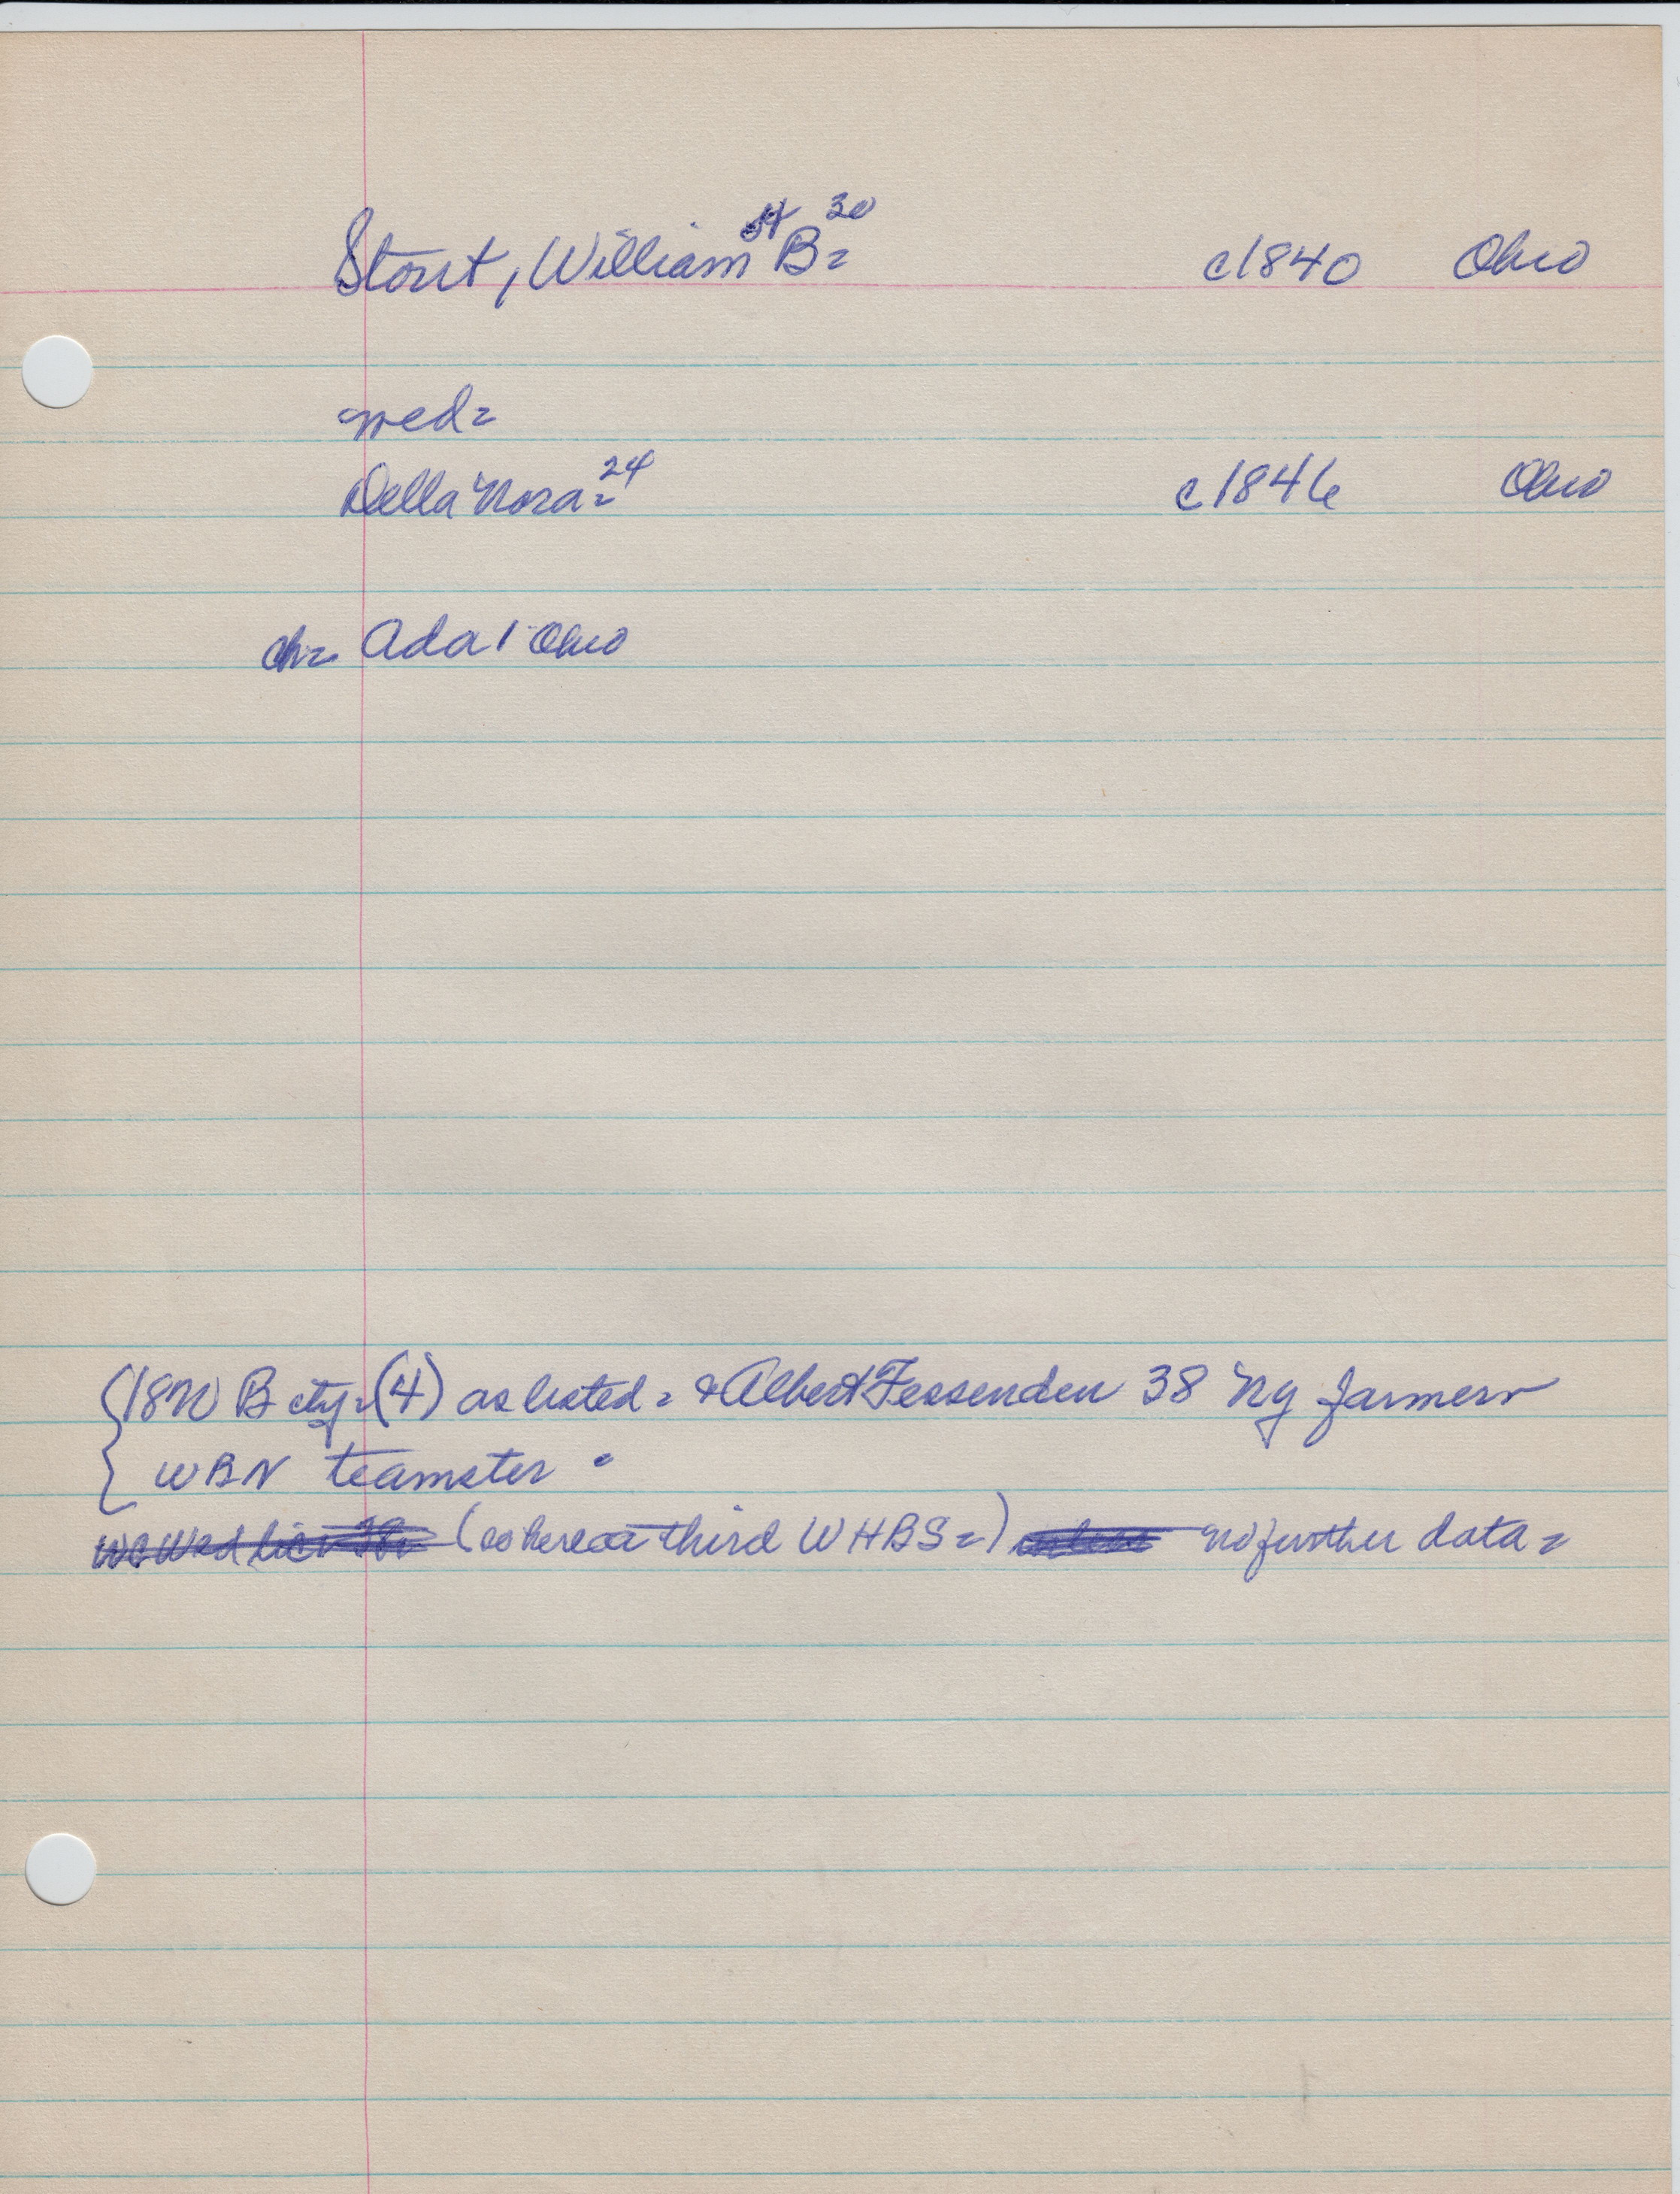 Stout, William B= 30 c1840 Ohio
wed=
Della Nora= 24 c1846 Ohio
ch= Ada 1 Ohio
1870 B cty= (4) as listed= & Albert Fessenden 38 NY farmer
WBN teamster
third WHBS=) no further data=